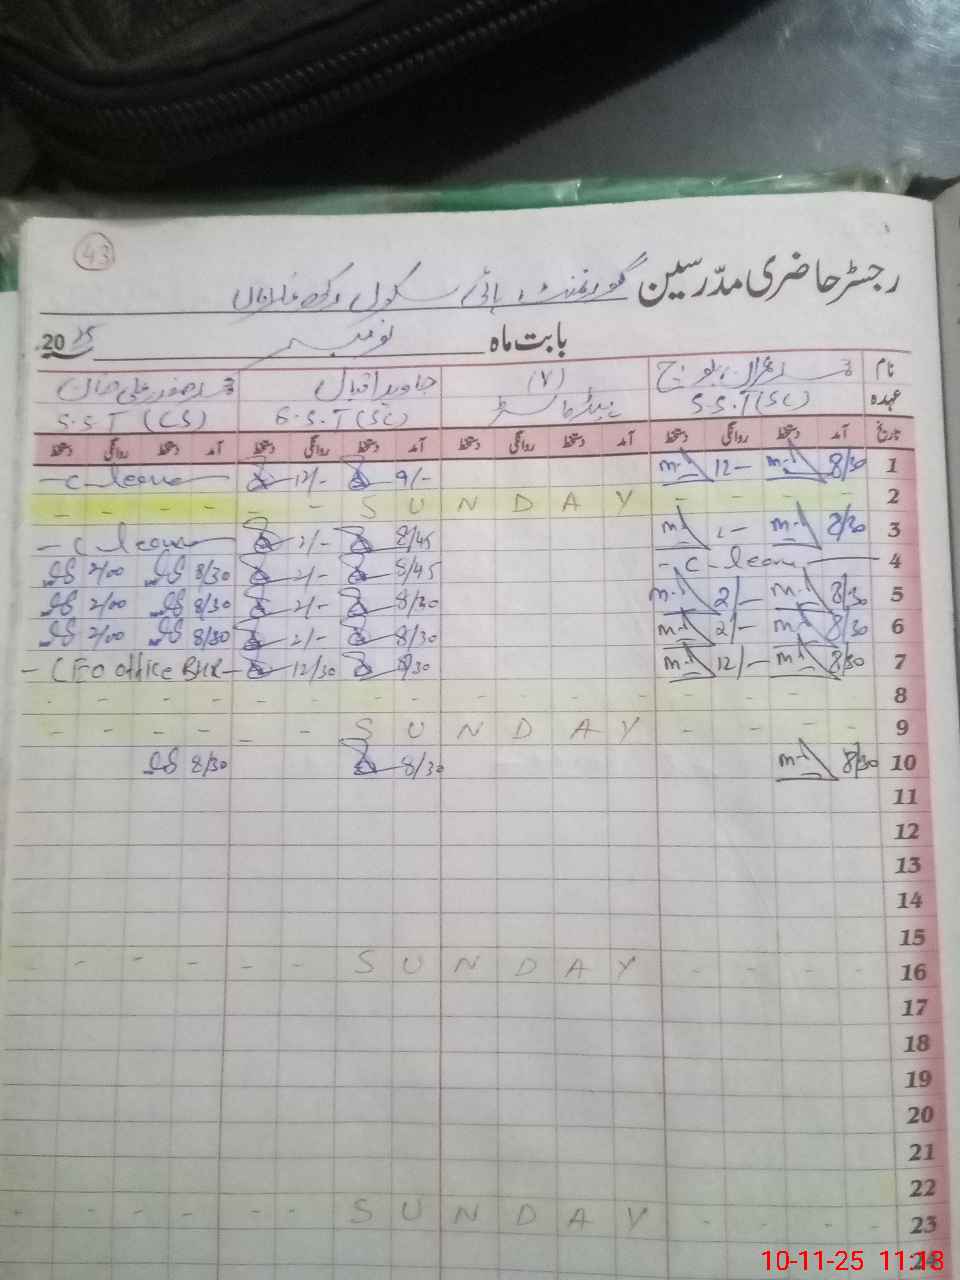 43
رجسٹر حاضری مدرسین گورنمنٹ ہائی سکول
بابت ماہ نومبر 2025
نام جاوید اقبال (V)
عہدہ S.S.T (SC) ہیڈ ماسٹر S.S.T (SC) S.S.T (CS)
تاریخ آمد دستخط روانگی دستخط آمد دستخط روانگی دستخط آمد دستخط روانگی دستخط آمد دستخط روانگی دستخط
1 8/30 12 – 9/- 12/- – C leave –
2 – – – – S U N D A Y – – – – – –
3 8/30 2 – 8/45 2/- – C leave –
4 – C leave – 8/45 2/- 8/30 2/00
5 8/30 2/– 8/30 2/- 8/30 2/00
6 8/30 2/– 8/30 2/- 8/30 2/00
7 8/30 12/– 8/30 12/30 – CEO office BHK –
8 – – – – – – – – – – – – – – – –
9 – – – – S U N D A Y – – – – – –
10 8/30 8/30 8/30
11
12
13
14
15
16 – – – – S U N D A Y – – – – – –
17
18
19
20
21
22
23 – – – – S U N D A Y – – – – – –
24
10-11-25 11:13